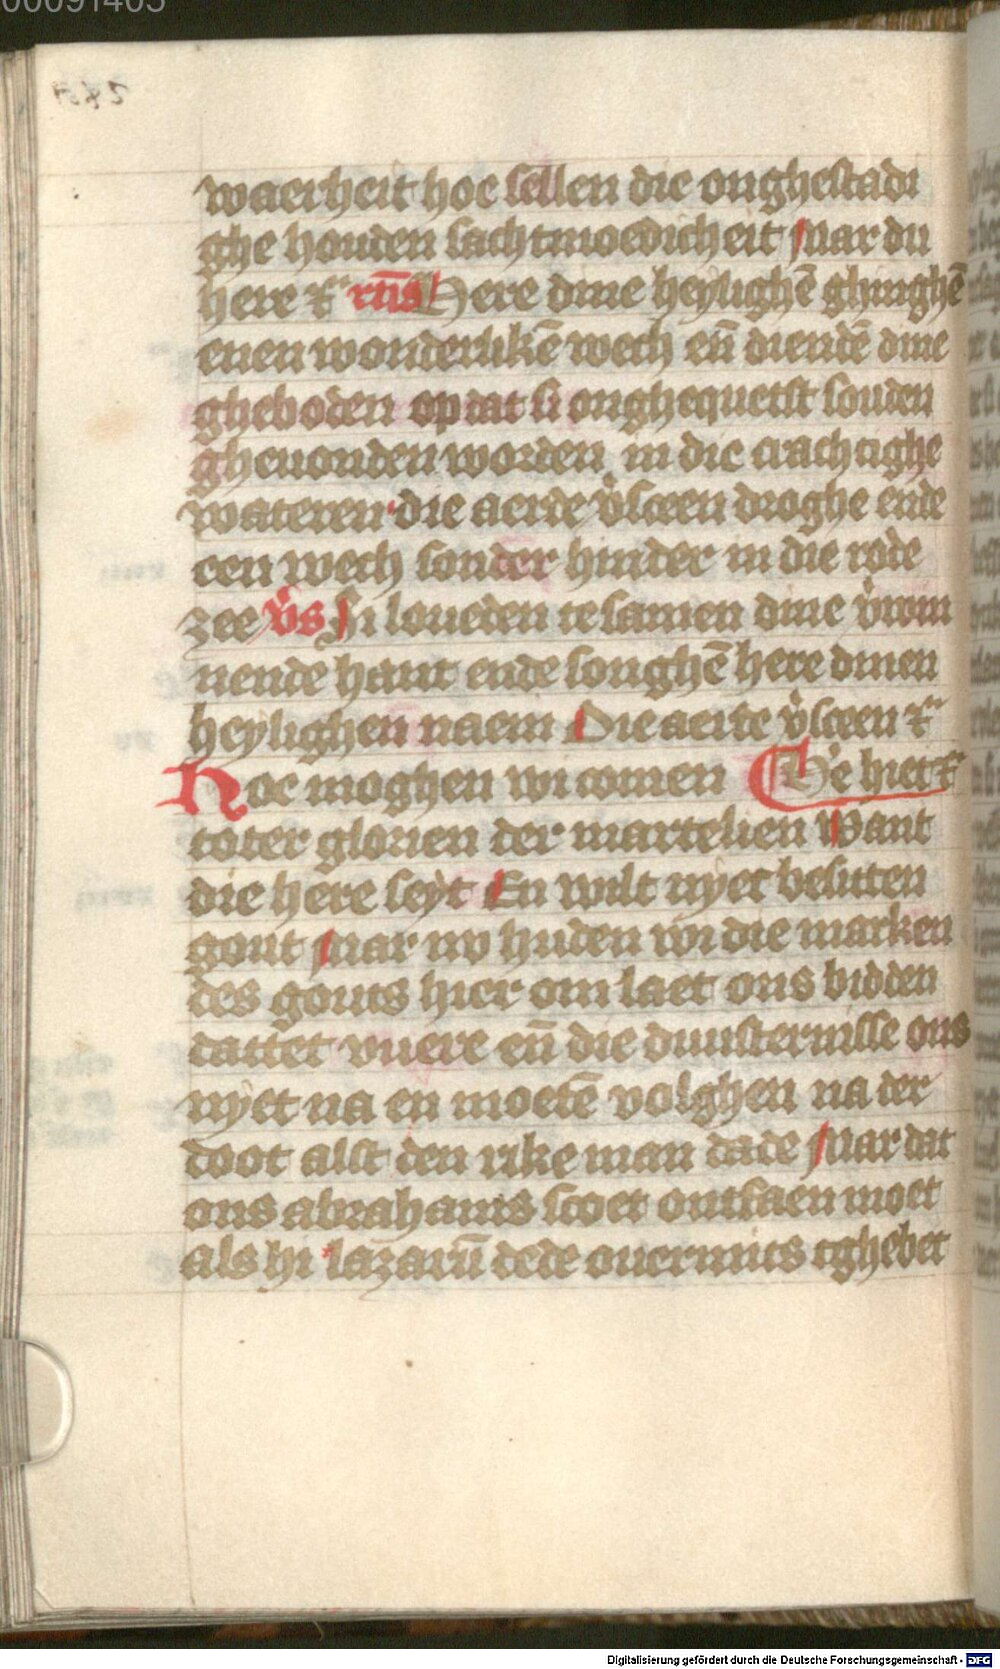 00091405
waerheit hoe sellen die onghestadi
ghe houden sachtmoedicheit Mar du
here ⁊c̄ rn̄s Here dine heylighē ghinghē
enen wonderlikē wech en̄ diendē dine
gheboden op dat si onghequetst souden
gheuonden worden in die crachtighe
wateren die aerde v̓sceen droghe ende
een wech sonder hinder in die rode
zee v̓s Si loueden te samen dine v̓win
nende hant ende songhē here dinen
heylighen naem Die aerde v̓sceen ⁊c̄
Hoe moghen wi comen hiet ⁊c̄
toter glorien der martelien Want
die here seyt En wilt nyet besitten
gout Mar nv huden wi die marken
des gouts hier om laet ons bidden
dattet vuere en̄ die duusternisse ons
nyet na en moetē volghen na der
doot alst den rike man dade Mar dat
ons abrahams scoet ontfaen moet
als hi lazarū dede ouermits tghebet
Digitalisierung gefördert durch die Deutsche Forschungsgemeinschaft - DFG